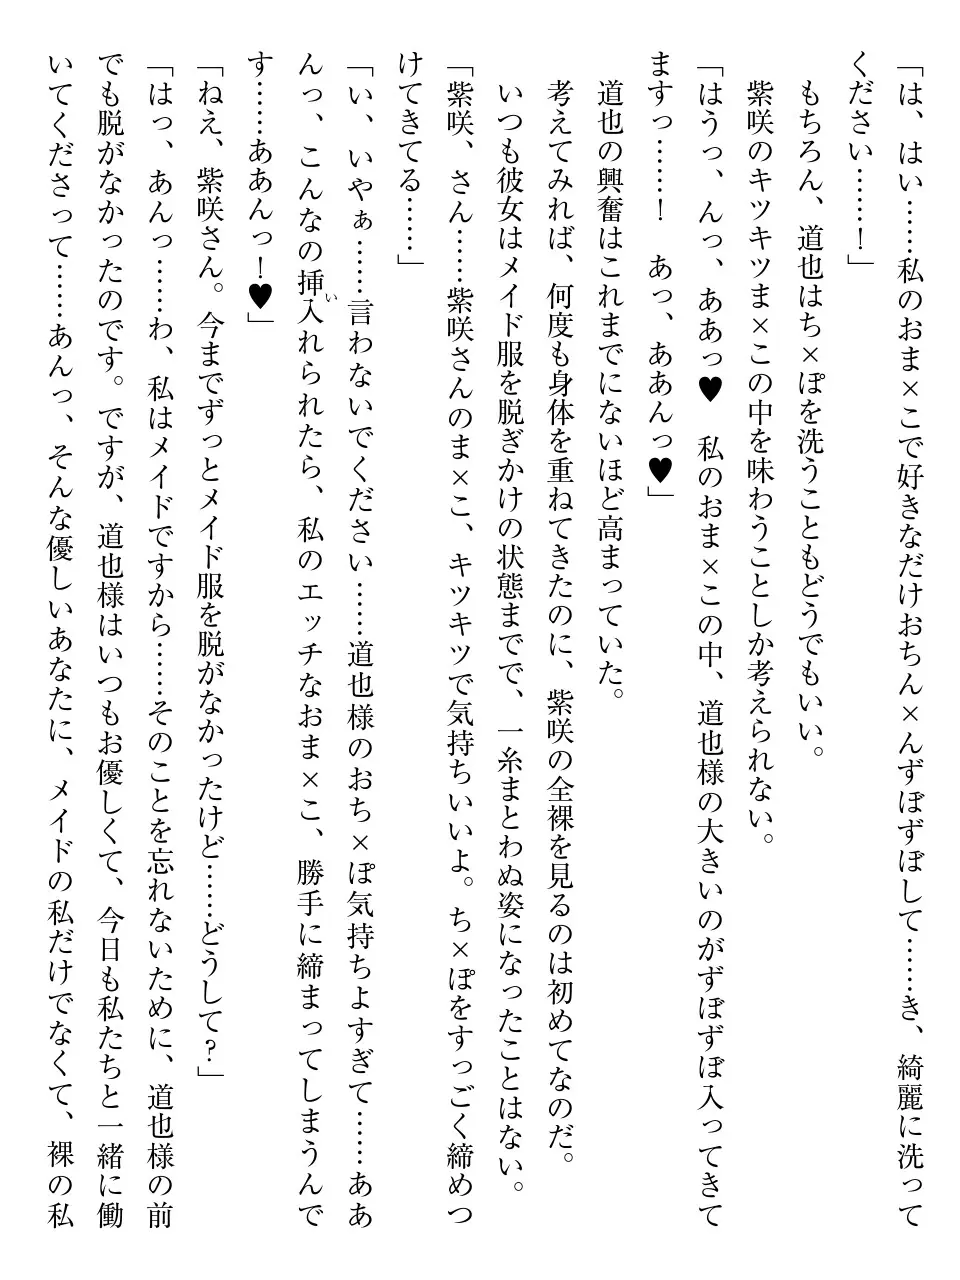 「は、はい……私のおま×こで好きなだけおちん×んずぼずぼして……き、綺麗に洗って
ください……！」
　もちろん、道也はち×ぽを洗うこともどうでもいい。
　紫咲のキツキツま×この中を味わうことしか考えられない。
「はうっ、んっ、ああっ♥　私のおま×この中、道也様の大きいのがずぼずぼ入ってきて
ますっ……！　あっ、ああんっ♥」
　道也の興奮はこれまでにないほど高まっていた。
　考えてみれば、何度も身体を重ねてきたのに、紫咲の全裸を見るのは初めてなのだ。
　いつも彼女はメイド服を脱ぎかけの状態までで、一糸まとわぬ姿になったことはない。
「紫咲、さん……紫咲さんのま×こ、キツキツで気持ちいいよ。ち×ぽをすっごく締めつ
けてきてる……」
「い、いやぁ……言わないでください……道也様のおち×ぽ気持ちよすぎて……ああ
んっ、こんなの挿入い れられたら、私のエッチなおま×こ、勝手に締まってしまうんで
す……ああんっ！♥」
「ねえ、紫咲さん。今までずっとメイド服を脱がなかったけど……どうして？」
「はっ、あんっ……わ、私はメイドですから……そのことを忘れないために、道也様の前
でも脱がなかったのです。ですが、道也様はいつもお優しくて、今日も私たちと一緒に働
いてくださって……あんっ、そんな優しいあなたに、メイドの私だけでなくて、裸の私